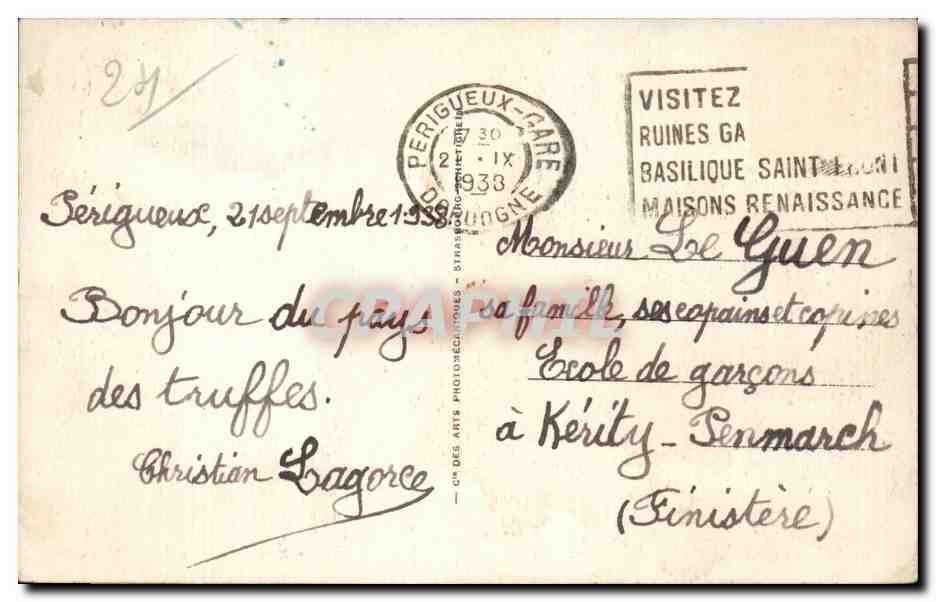 24
PERIGUEUX-GARE
7 30
2 . IX
1938
DORDOGNE
VISITEZ
RUINES GA
BASILIQUE SAINT FRONT
MAISONS RENAISSANCE
Périgueux, 21 septembre 1938.
Bonjour du pays
des truffes.
Christian Lagorce
— Cie DES ARTS PHOTOMÉCANIQUES - STRASBOURG-SCHILTIGHEIM
Monsieur Le Guen
sa famille, ses copains et copines
Ecole de garçons
à Kérity - Penmarch
(Finistère)
CPAPHIL